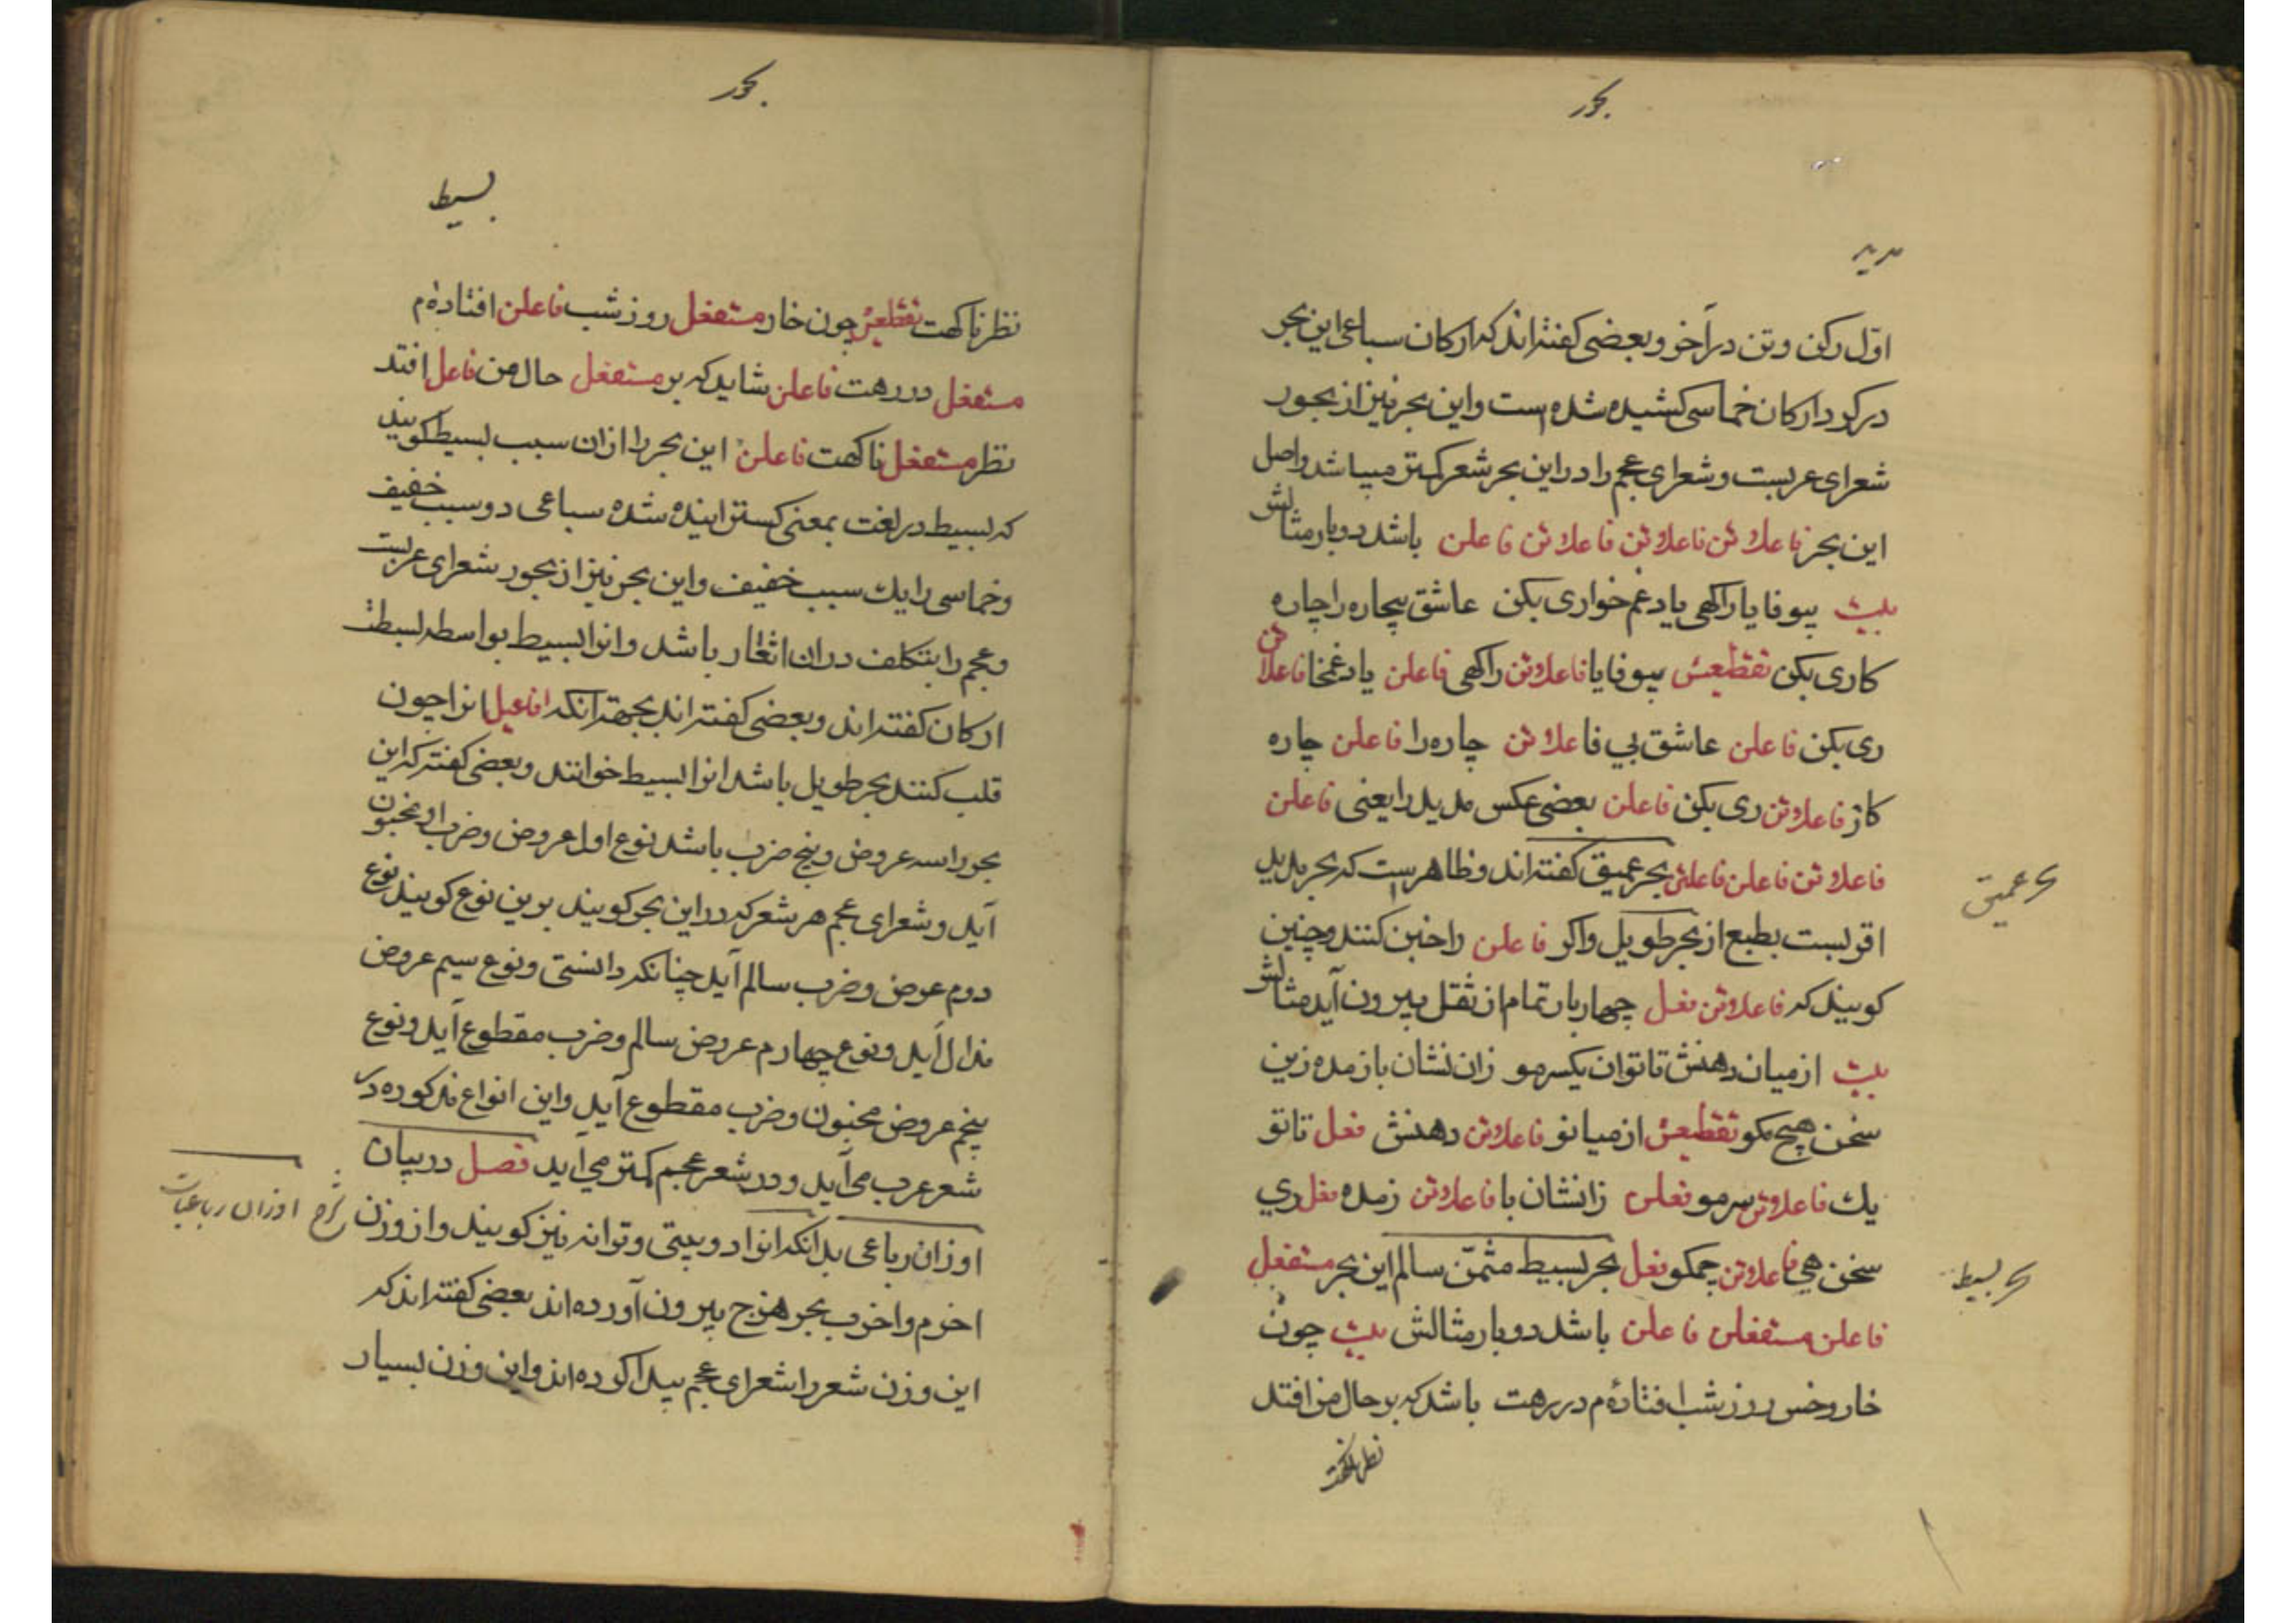 بحور
مدید
اوّل رکن وتن در آخر و بعضی گفته‌اند که ارکان سباعی این بحر
در گرد ارکان خماسی کشیده شده است و این بحر نیز از بحور
شعرای عربست و شعرای عجم را در این بحر شعر کمتر میباشد و اصل
این بحر فاعلاتن فاعلاتن فاعلاتن فاعلن باشد دو بار مثالش
بیت بیوفا یارا کهی یاد غم خواری بکن عاشق بیچاره را چاره
کاری بکن تقطیعش بیوفا یا فاعلاتن را کهی فاعلن یاد غمخا فاعلاتن
ری بکن فاعلن عاشق بی فاعلاتن چاره را فاعلن چاره
کار فاعلاتن ری بکن فاعلن بعضی عکس مدید را یعنی فاعلن
فاعلاتن فاعلن فاعلاتن بحر عمیق گفته‌اند و ظاهر است که بحر مدید
بحر عمیق
اقربست بطبع از بحر طویل و اگر فاعلن را خبن کنند و چنین
کویند که فاعلاتن فعل چهار بار تمام از ثقل بیرون آید مثالش
بیت از میان دهنش تا توان یکسر مو زان نشان باز مده زین
سخن هیچ مکو تقطیعش از میانو فاعلاتن دهنش فعل تا تو
یک فاعلاتن سر مو فعلن زانشان با فاعلاتن زمده فعل زی
سخن هی فاعلاتن چمکو فعل بحر بسیط مثمّن سالم این بحر مستفعل
بحر بسیط
فاعلن مستفعلن فاعلن باشد دو بار مثالش بیت چون
خار و خس روز شب افتاده‌ٔم در رهت باشد که بر حال من افتد
بحور
بسیط
نظر ناکهت تقطیعش چون خار مستفعل روز شب فاعلن افتاده‌ٔم
مستفعل در رهت فاعلن شاید که بر مستفعل حال من فاعل افتد
نظر مستفعل ناکهت فاعلن این بحر را ازان سبب بسیط کویند
که بسیط در لغت بمعنی کسترانیده شده سباعی دو سبب خفیف
و خماسی را یک سبب خفیف و این بحر نیز از بحور شعرای عربست
و عجم را بتکلف دران اشعار باشد و انرا بسیط بواسطه بسطت
ارکان گفته‌اند و بعضی گفته‌اند بجهة آنکه افاعیل انرا چون
قلب کنند بحر طویل باشد انرا بسیط خوانند و بعضی گفته که این
بحور را سه عروض و پنج ضرب باشد نوع اول عروض و ضرب او مخبون
آید و شعرای عجم هر شعر که در این بحر کویند برین نوع کویند نوع
دوم عروض و ضرب سالم آید چنانکه دانستی و نوع سیم عروض
مذال آید و نوع چهارم عروض سالم و ضرب مقطوع آید و نوع
پنجم عروض مخبون و ضرب مقطوع آید و این انواع مذکوره در
شعر عرب می‌آید و در شعر عجم کمتر می‌آید فصل در بیان
اوزان رباعی بدانکه انرا دوبیتی و ترانه نیز کویند و از وزن
شرح اوزان رباعیات
اخرم و اخرب بحر هزج بیرون آورده‌اند بعضی گفته‌اند که
این وزن شعر را شعرای عجم پیدا کرده‌اند و این وزن بسیار